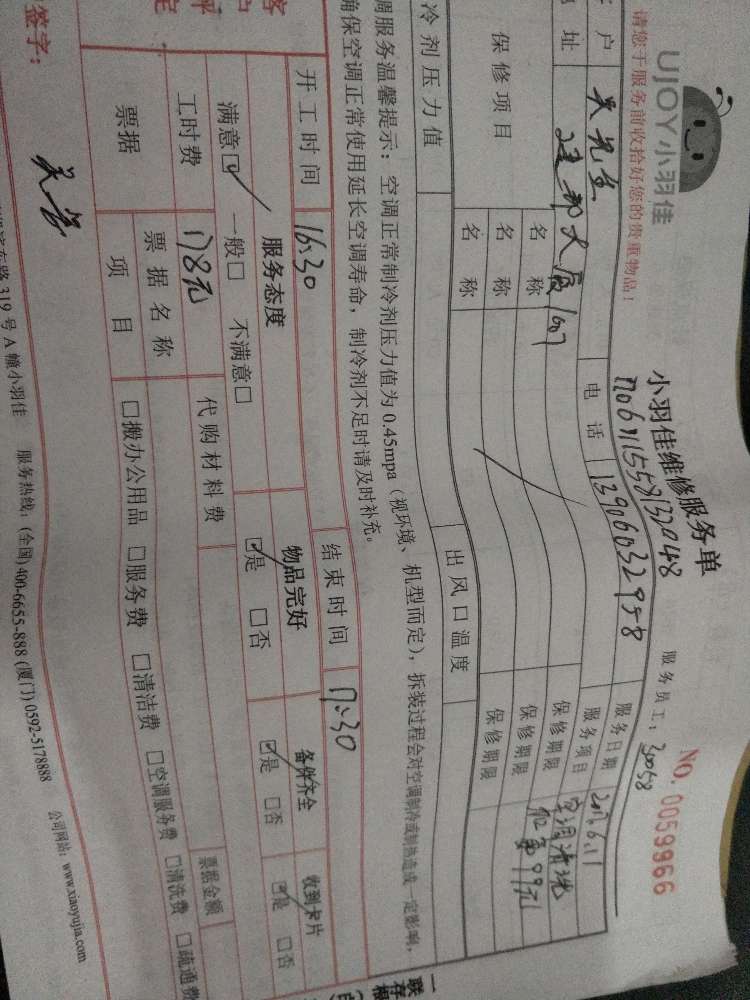 UJOY小羽佳
小羽佳维修服务单
NO. 0059966
请您于服务前收拾好您的贵重物品！
服务员工：30058
户 吴先生 电话 13906032998 服务日期 2016.6.11
址 建邦大厦1607 服务项目 空调清洗
保修项目 名称 保修期限
名称 保修期限
名称 保修期限
冷剂压力值 出风口温度
调服务温馨提示：空调正常制冷剂压力值为0.45mpa（视环境、机型而定），拆装过程会对空调制冷或制热造成一定影响，
确保空调正常使用延长空调寿命，制冷剂不足时请及时补充。
开工时间 16:30 结束时间 17:30
客 服务态度 物品完好 备件齐全 收到卡片
评 满意☑ 一般□ 不满意□ ☑是 □否 ☑是 □否 ☑是 □否
定 工时费 178元 代购材料费
票据 票据名称 票据金额
项目 □搬办公用品 □服务费 □清洁费 □空调服务费 □清洗费 □疏通费
签字：
路319号A幢小羽佳 服务热线：(全国)400-6655-888 (厦门)0592-5178888 公司网站：www.xiaoyujia.com
一联存根